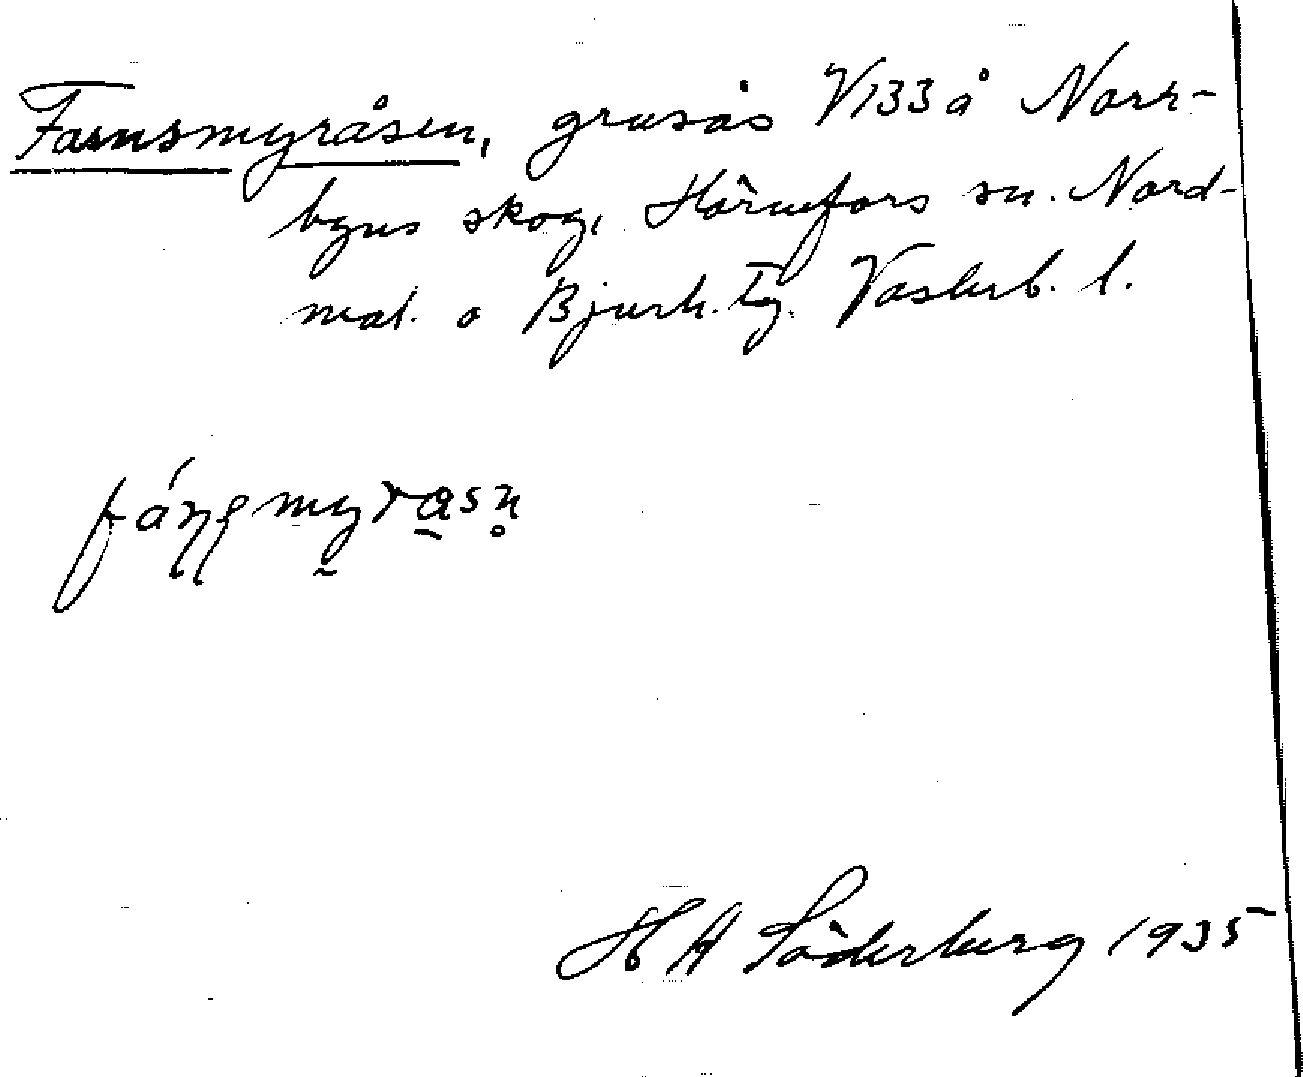 Farnsmyråsen, grusås V133 å Norr-
byns skog, Hörnefors sn. Nord-
mal. o Bjurh. tg. Västerb. l.
H A Söderberg 1935